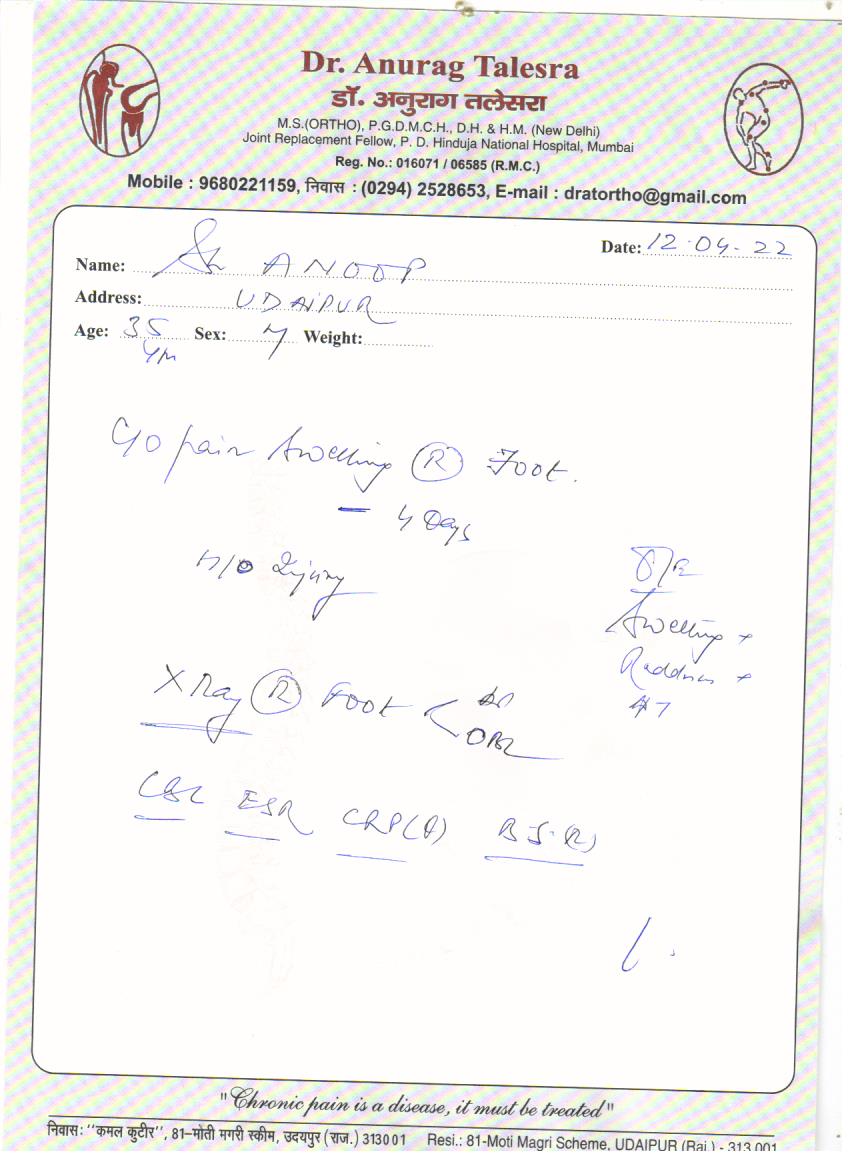 Dr. Anurag Talesra
डॉ. अनुराग तलेसरा
M.S.(ORTHO), P.G.D.M.C.H., D.H. & H.M. (New Delhi)
Joint Replacement Fellow, P. D. Hinduja National Hospital, Mumbai
Reg. No.: 016071 / 06585 (R.M.C.)
Mobile : 9680221159, निवास : (0294) 2528653, E-mail : dratortho@gmail.com
Date: 12.04.22
Name: Sh ANOOP
Address: UDAIPUR
Age: 35 Sex: M Weight:
Yrs
C/O pain Swelling (R) Foot.
- 4 Days
H/O Injury
O/E
Swelling +
Redness +
X Ray (R) Foot < AP
OBL
CBC ESR CRP(Q) BS.(R)
"Chronic pain is a disease, it must be treated"
निवास: "कमल कुटीर", 81-मोती मगरी स्कीम, उदयपुर (राज.) 313001 Resi.: 81-Moti Magri Scheme, UDAIPUR (Raj.) - 313 001